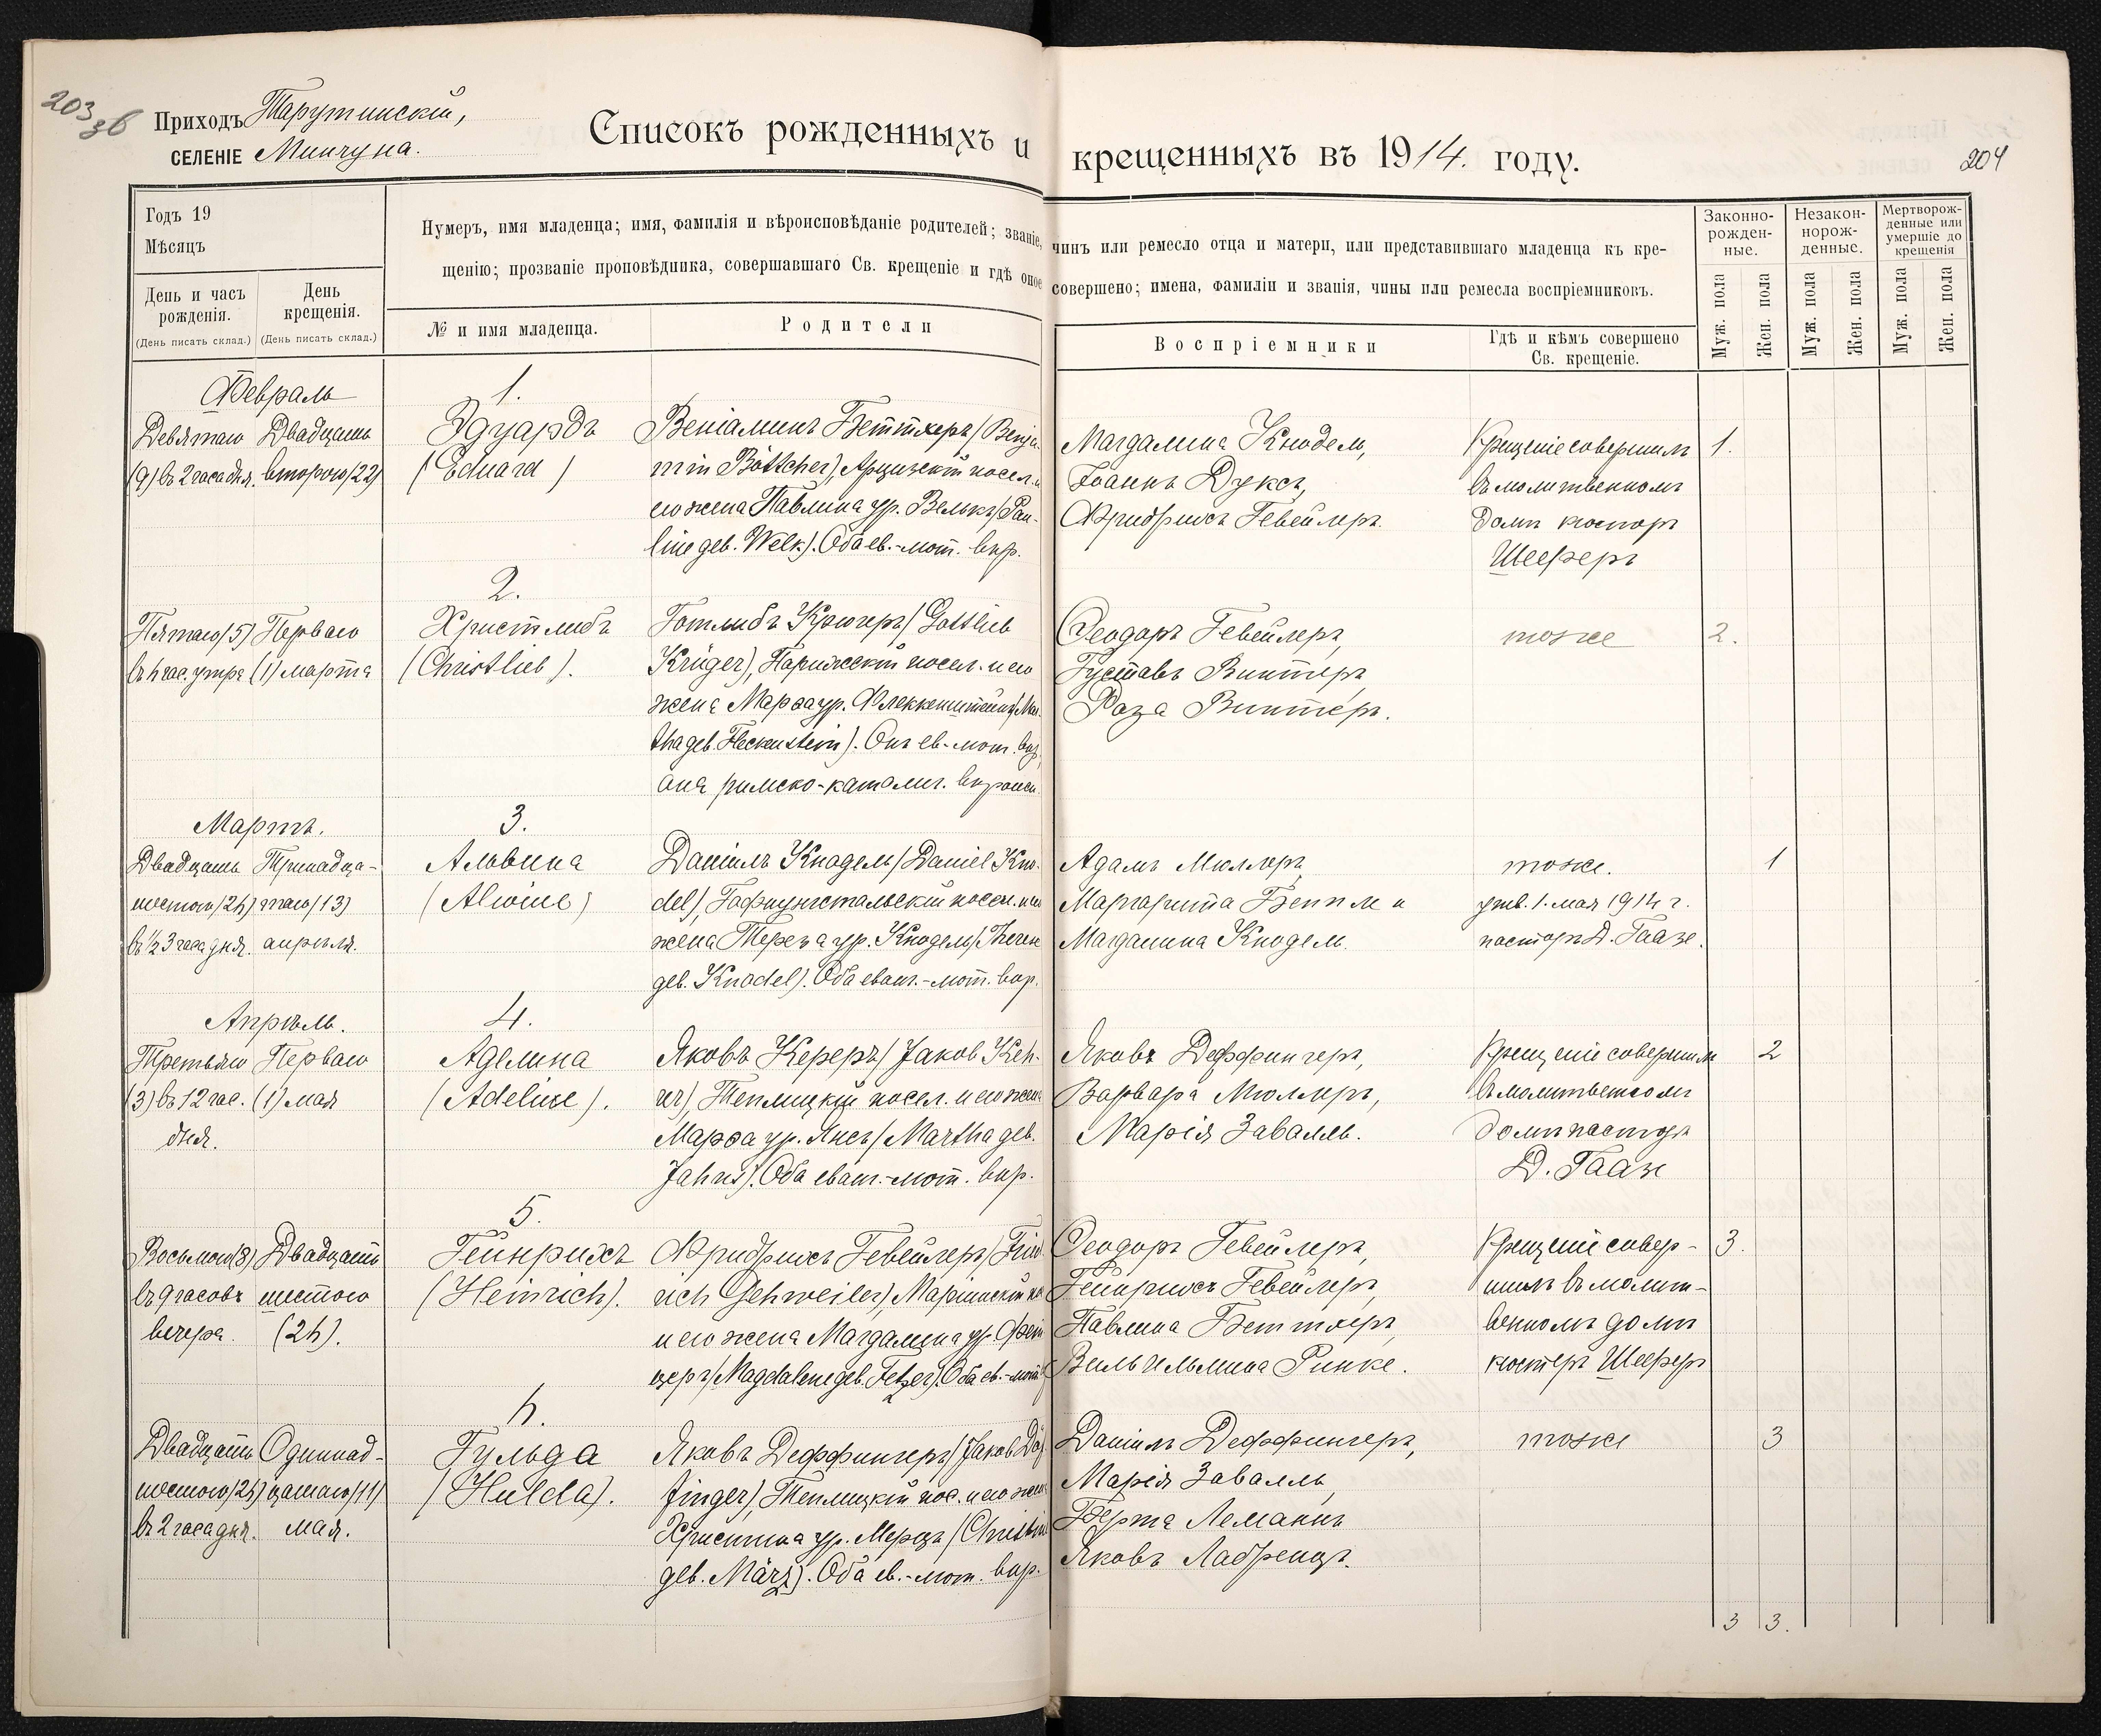 203 зв
Приходъ Тарутинскій,
СЕЛЕНІЕ Минчуна.
Списокъ рожденныхъ и крещенныхъ въ 1914. году.
204
Годъ 19
Мѣсяцъ
День и часъ рожденія.
(День писать склад.)
День крещенія.
(День писать склад.)
Нумеръ, имя младенца; имя, фамилія и вѣроисповѣданіе родителей; званіе, чинъ или ремесло отца и матери, или представившаго младенца къ кре-
щенію; прозваніе проповѣдника, совершавшаго Св. крещеніе и гдѣ оное совершено; имена, фамиліи и званія, чины или ремесла воспріемниковъ.
№ и имя младенца.
Родители
Воспріемники
Гдѣ и кѣмъ совершено
Св. крещеніе.
Законно-
рожден-
ные.
Незакон-
норож-
денные.
Мертворож-
денные или
умершіе до
крещенія
Муж. пола
Жен. пола
Муж. пола
Жен. пола
Муж. пола
Жен. пола
Февраль
Девятаго
(9) въ 2 часа дня.
Двадцать
второго (22)
1.
Эдуардъ
(Eduard)
Веніаминъ Беттхеръ (Benja-
min Böttcher), Арцизскій посел. и
его жена Павлина ур. Велькъ (Pau-
line geb. Welk). Оба ев.-лют. вѣр.
Магдалина Кнодель,
Іоаннъ Дуксъ,
Фридрихъ Гевейлеръ.
Крещеніе совершилъ
въ молитвенномъ
домѣ кюстеръ
Шееферъ
1.
Пятаго (5)
въ 6 час. утра
Перваго
(1) марта
2.
Христлибъ
(Christlieb).
Готлибъ Крюгеръ (Gottlieb
Krüger), Парижскій посел. и его
жена Марѳа ур. Флеккенштейнъ (Mar-
tha geb. Fleckenstein). Онъ ев.-лют. вѣр.,
она римско-католич. вѣроисп.
Ѳеодоръ Гевейлеръ,
Густавъ Винтеръ,
Роза Винтеръ.
тоже
2.
Мартъ.
Двадцать
шестого (26)
въ ½ 3 часа дня.
Тринадца-
таго (13)
апрѣля.
3.
Альвина
(Alwine)
Даніилъ Кнадель (Daniel Kna-
del), Гофнунгстальскій посел. и его
жена Тереза ур. Кнодель (Therese
geb. Knodel). Оба еванг.-лют. вѣр.
Адамъ Миллеръ,
Маргарита Бенпле и
Магдалина Кнодель.
тоже.
утв. 1. мая 1914 г.
пасторъ Д. Гаазе.
1
Апрѣль.
Третьяго
(3) въ 12 час.
дня.
Перваго
(1) мая
4.
Аделина
(Adeline).
Яковъ Кереръ (Jakob Keh-
rer), Теплицкій посел. и его жена
Марѳа ур. Янсъ (Martha geb.
Jahns). Оба еванг.-лют. вѣр.
Яковъ Деффингеръ,
Варвара Мюллеръ,
Марія Заваллъ.
Крещеніе совершилъ
въ молитвенномъ
домѣ пасторъ
Д. Гаазе
2
Восьмого (8)
въ 9 часовъ
вечера.
Двадцать
шестого
(26).
5.
Гейнрихъ
(Heinrich).
Фридрихъ Гевейлеръ (Fried-
rich Gehweiler), Маріинскій пос.
и его жена Магдалина ур. Фет-
церъ (Magdalene geb. Fetzer). Оба ев.-лют.
Ѳеодоръ Гевейлеръ,
Гейнрихъ Гевейлеръ,
Павлина Беттхеръ,
Вильгельмина Ринке.
Крещеніе совер-
шилъ въ молит-
венномъ домѣ
кюстеръ Шееферъ
3.
Двадцать
шестого (26)
въ 2 часа дня.
Одиннад-
цатаго (11)
мая.
6.
Гульда
(Hulda).
Яковъ Деффингеръ (Jakob Döf-
finger), Теплицкій пос. и его жена
Христина ур. Мерцъ (Christine
geb. März). Оба ев.-лют. вѣр.
Даніилъ Деффингеръ,
Марія Заваллъ,
Берта Леманнъ
Яковъ Лабренцъ.
тоже
3
3 3.